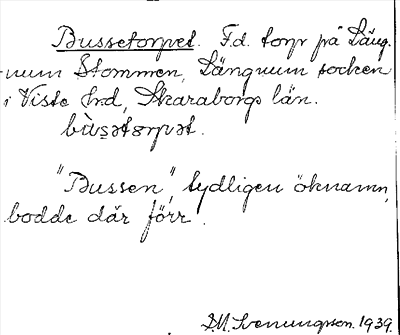 Bussetorpet. F.d. torp på Läng-
num Stommen, Längnum socken
i Viste hrd, Skaraborgs län.
bùsətɔrpət.
"Bussen", tydligen öknamn,
bodde där förr.
D.M. Svenungsson. 1939.